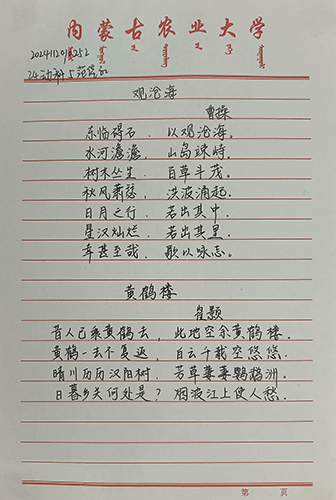 内蒙古农业大学
观沧海
曹操
东临碣石，以观沧海。
水河澹澹，山岛竦峙。
树木丛生，百草丰茂。
秋风萧瑟，洪波涌起。
日月之行，若出其中。
星汉灿烂，若出其里。
幸甚至哉，歌以咏志。
黄鹤楼
崔颢
昔人已乘黄鹤去，此地空余黄鹤楼。
黄鹤一去不复返，白云千载空悠悠。
晴川历历汉阳树，芳草萋萋鹦鹉洲。
日暮乡关何处是？烟波江上使人愁。
第 页